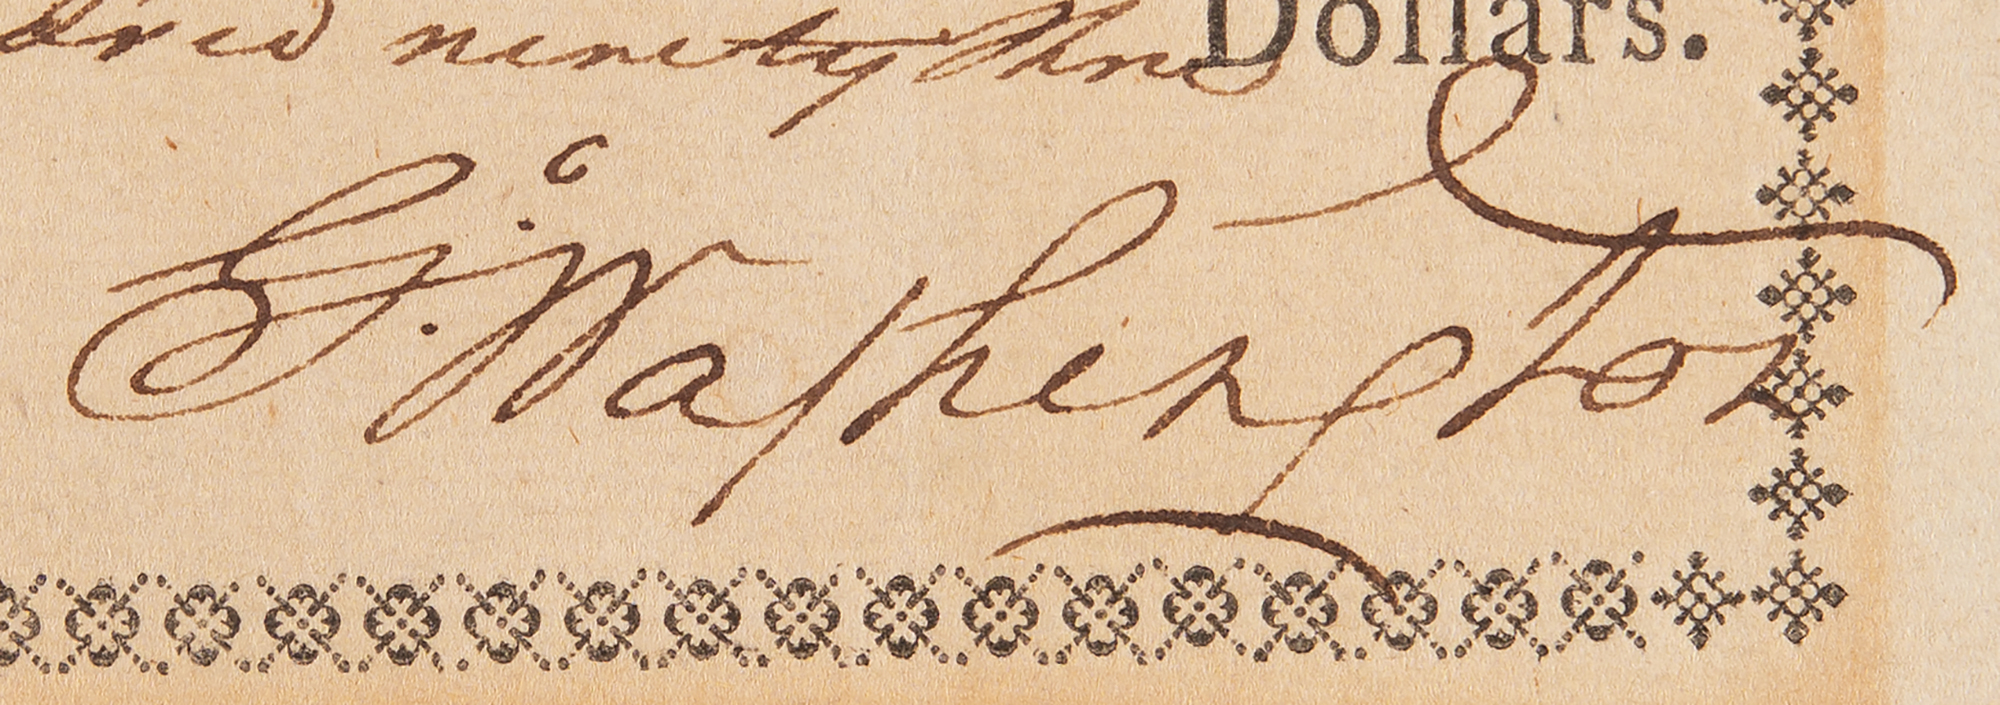 ninety three Dollars.
Go: Washington